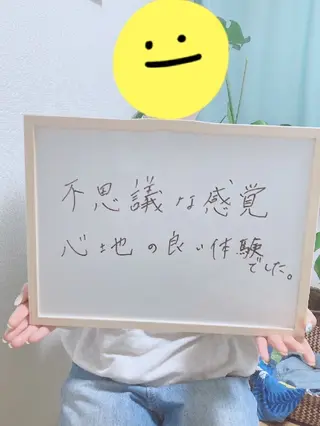 不思議な感覚
心地の良い体験
でした。